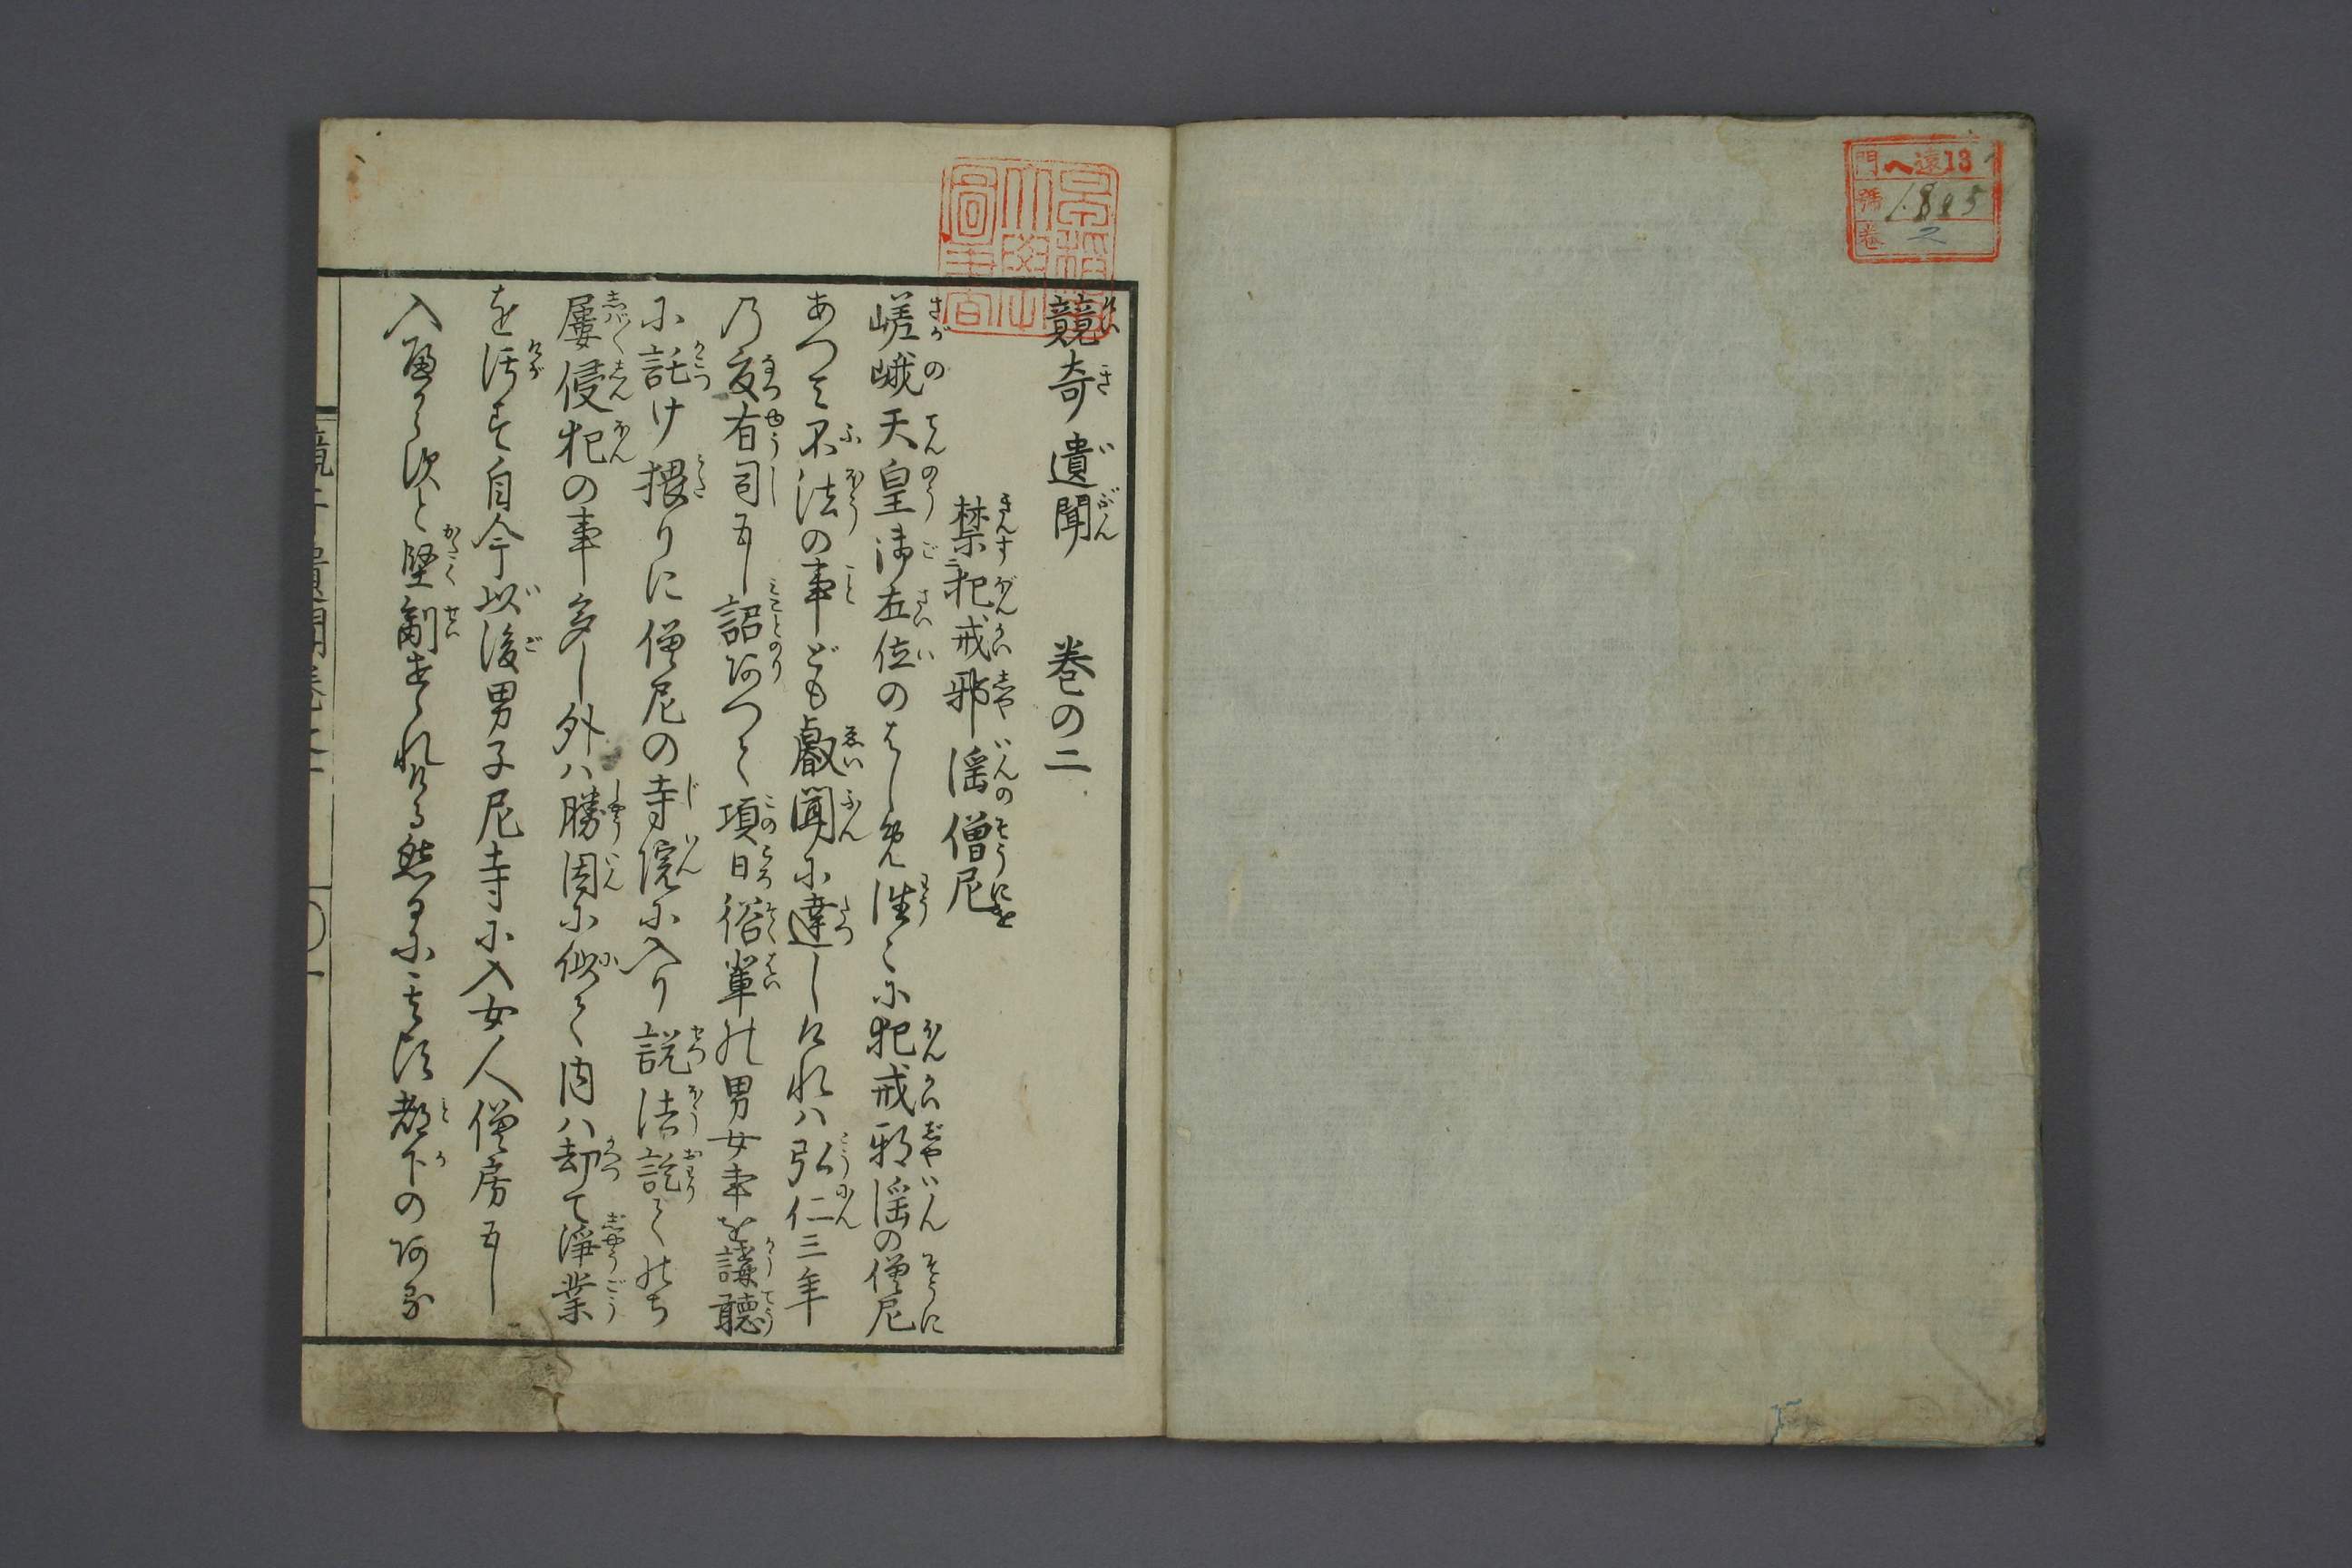 門 ヘ遠13
號 1885
巻 2
早稲田大學圖書
競奇遺聞 巻の二
禁犯戒邪淫僧尼
嵯峨天皇御在位のはじめ往〻に犯戒邪淫の僧尼
あつて不法の事ども叡聞に達しければ弘仁三年
乃夏有司に詔あつて項日俗輩の男女事を講聴
に託け猥りに僧尼の寺院に入り説法訖てのち
屡侵犯の事多し外ハ勝因に似て内ハ却て浄業
を汚す自今以後男子尼寺に入女人僧房に
入べからずと堅制せられける然るに其頃都下のある